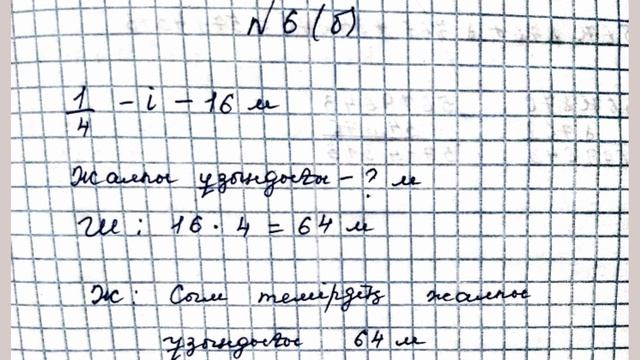 № 6 (б)
1/4 - і - 16 м
Жалпы ұзындығы - ? м
Ш: 16 · 4 = 64 м
Ж: Сым темірдің жалпы
ұзындығы 64 м